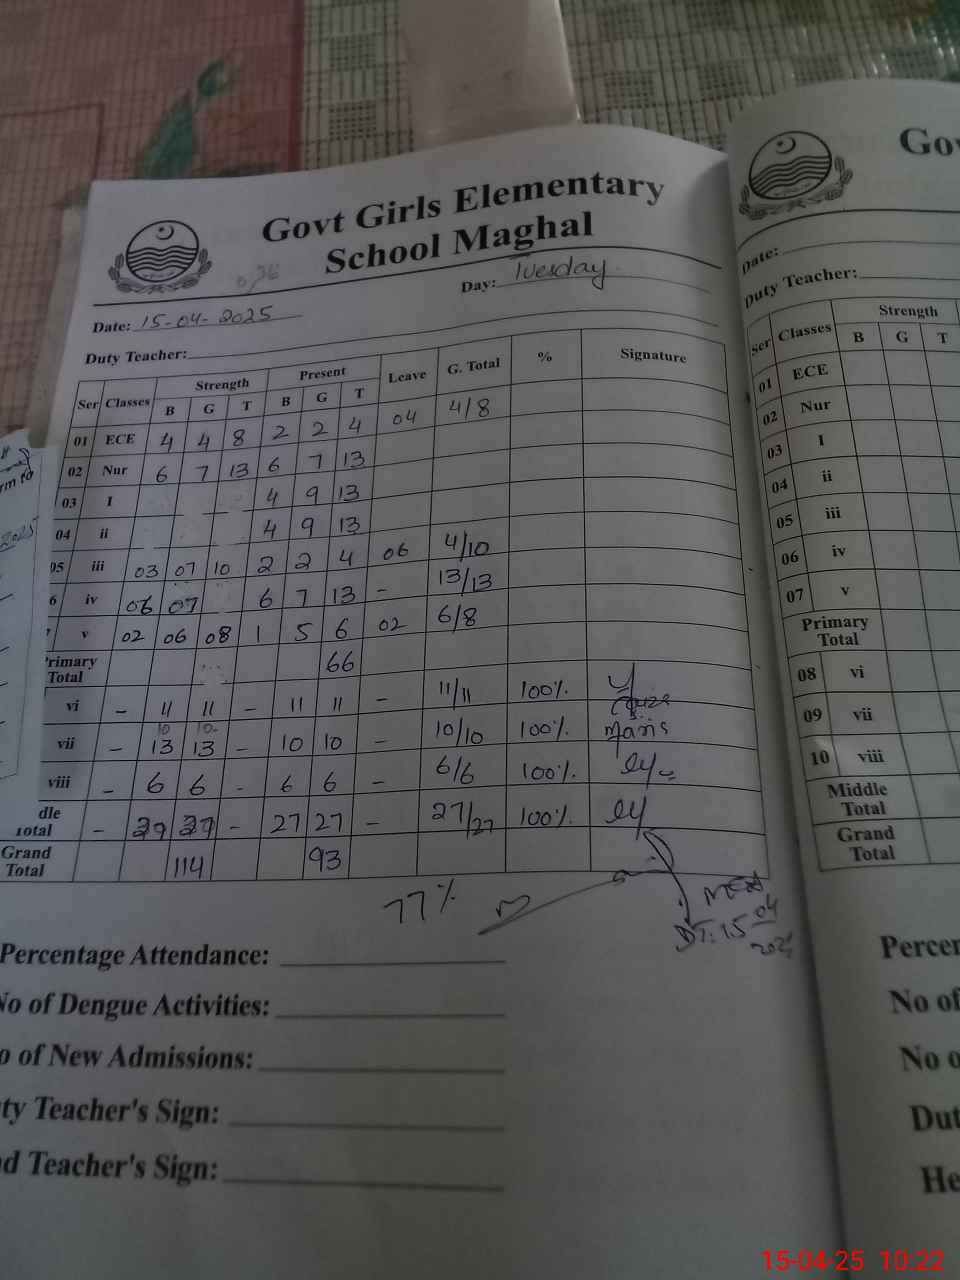 Govt Girls Elementary
School Maghal
Day: Tuesday
Date: 15-04-2025
Duty Teacher:
Ser Classes Strength Present Leave G. Total % Signature
B G T B G T
01 ECE 4 4 8 2 2 4 04 4/8
02 Nur 6 7 13 6 7 13
03 I 4 9 13
04 ii 4 9 13
05 iii 03 07 10 2 2 4 06 4/10
6 iv 06 07 6 7 13 - 13/13
v 02 06 08 1 5 6 02 6/8
Primary
Total 66
vi - 11 11 - 11 11 - 11/11 100%
10 10
vii - 13 13 - 10 10 - 10/10 100%
viii - 6 6 - 6 6 - 6/6 100%
dle
Total - - 27 27 - 27/27 100%
Grand
Total 114 93
77%
DT: 15 04
Percentage Attendance:
No of Dengue Activities:
o of New Admissions:
ty Teacher's Sign:
d Teacher's Sign:
Gov
Date:
Duty Teacher:
Ser Classes Strength
B G T
01 ECE
02 Nur
03 I
04 ii
05 iii
06 iv
07 v
Primary
Total
08 vi
09 vii
10 viii
Middle
Total
Grand
Total
Percer
No of
No o
Dut
He
rm to
2025
15-04-25 10:22